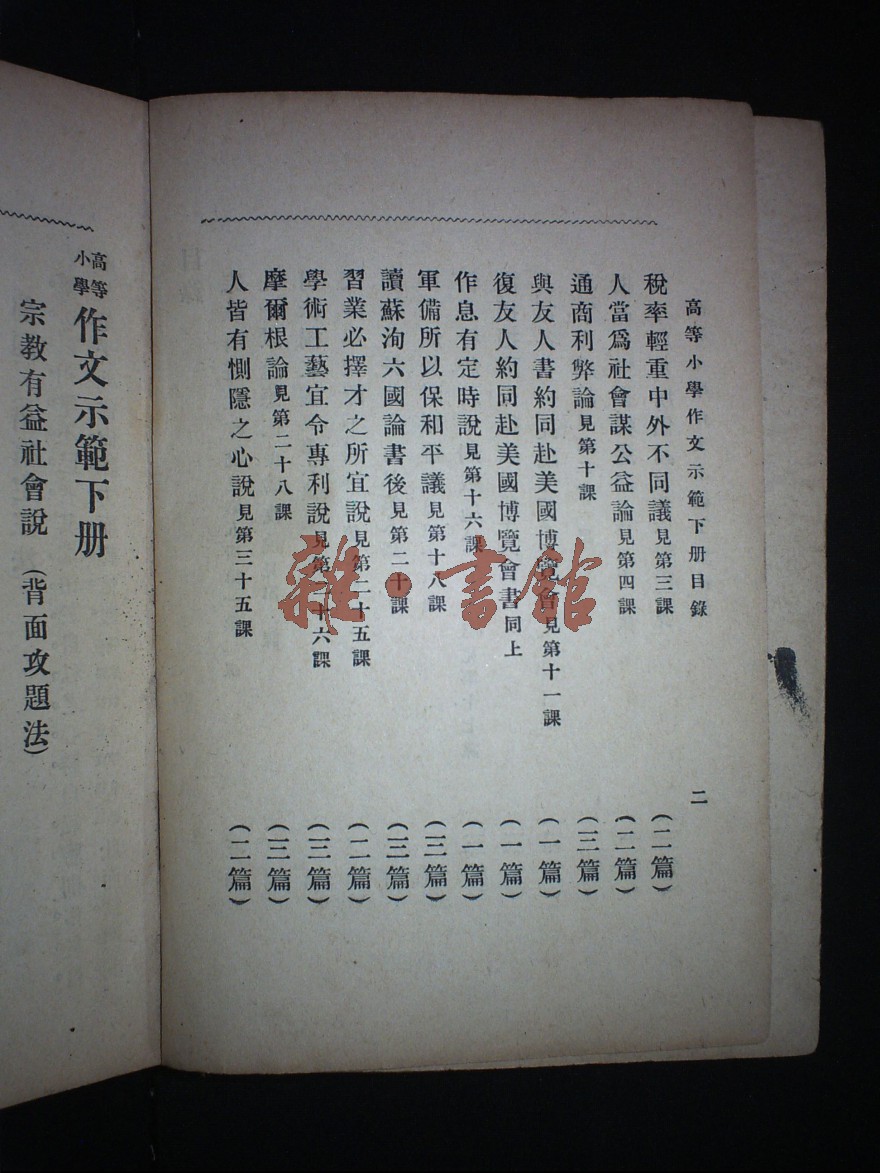 高等小學作文示範下册目錄 二
稅率輕重中外不同議見第三課 (二篇)
人當爲社會謀公益論見第四課 (二篇)
通商利弊論見第十課 (三篇)
與友人書約同赴美國博覽會見第十一課 (一篇)
復友人約同赴美國博覽會書同上 (一篇)
作息有定時說見第十六課 (一篇)
軍備所以保和平議見第十八課 (三篇)
讀蘇洵六國論書後見第二十課 (三篇)
習業必擇才之所宜說見第二十五課 (二篇)
學術工藝宜令專利說見第十六課 (三篇)
摩爾根論見第二十八課 (三篇)
人皆有惻隱之心說見第三十五課 (二篇)
高等小學作文示範下册
宗教有益社會說 (背面攻題法)
雜·書館